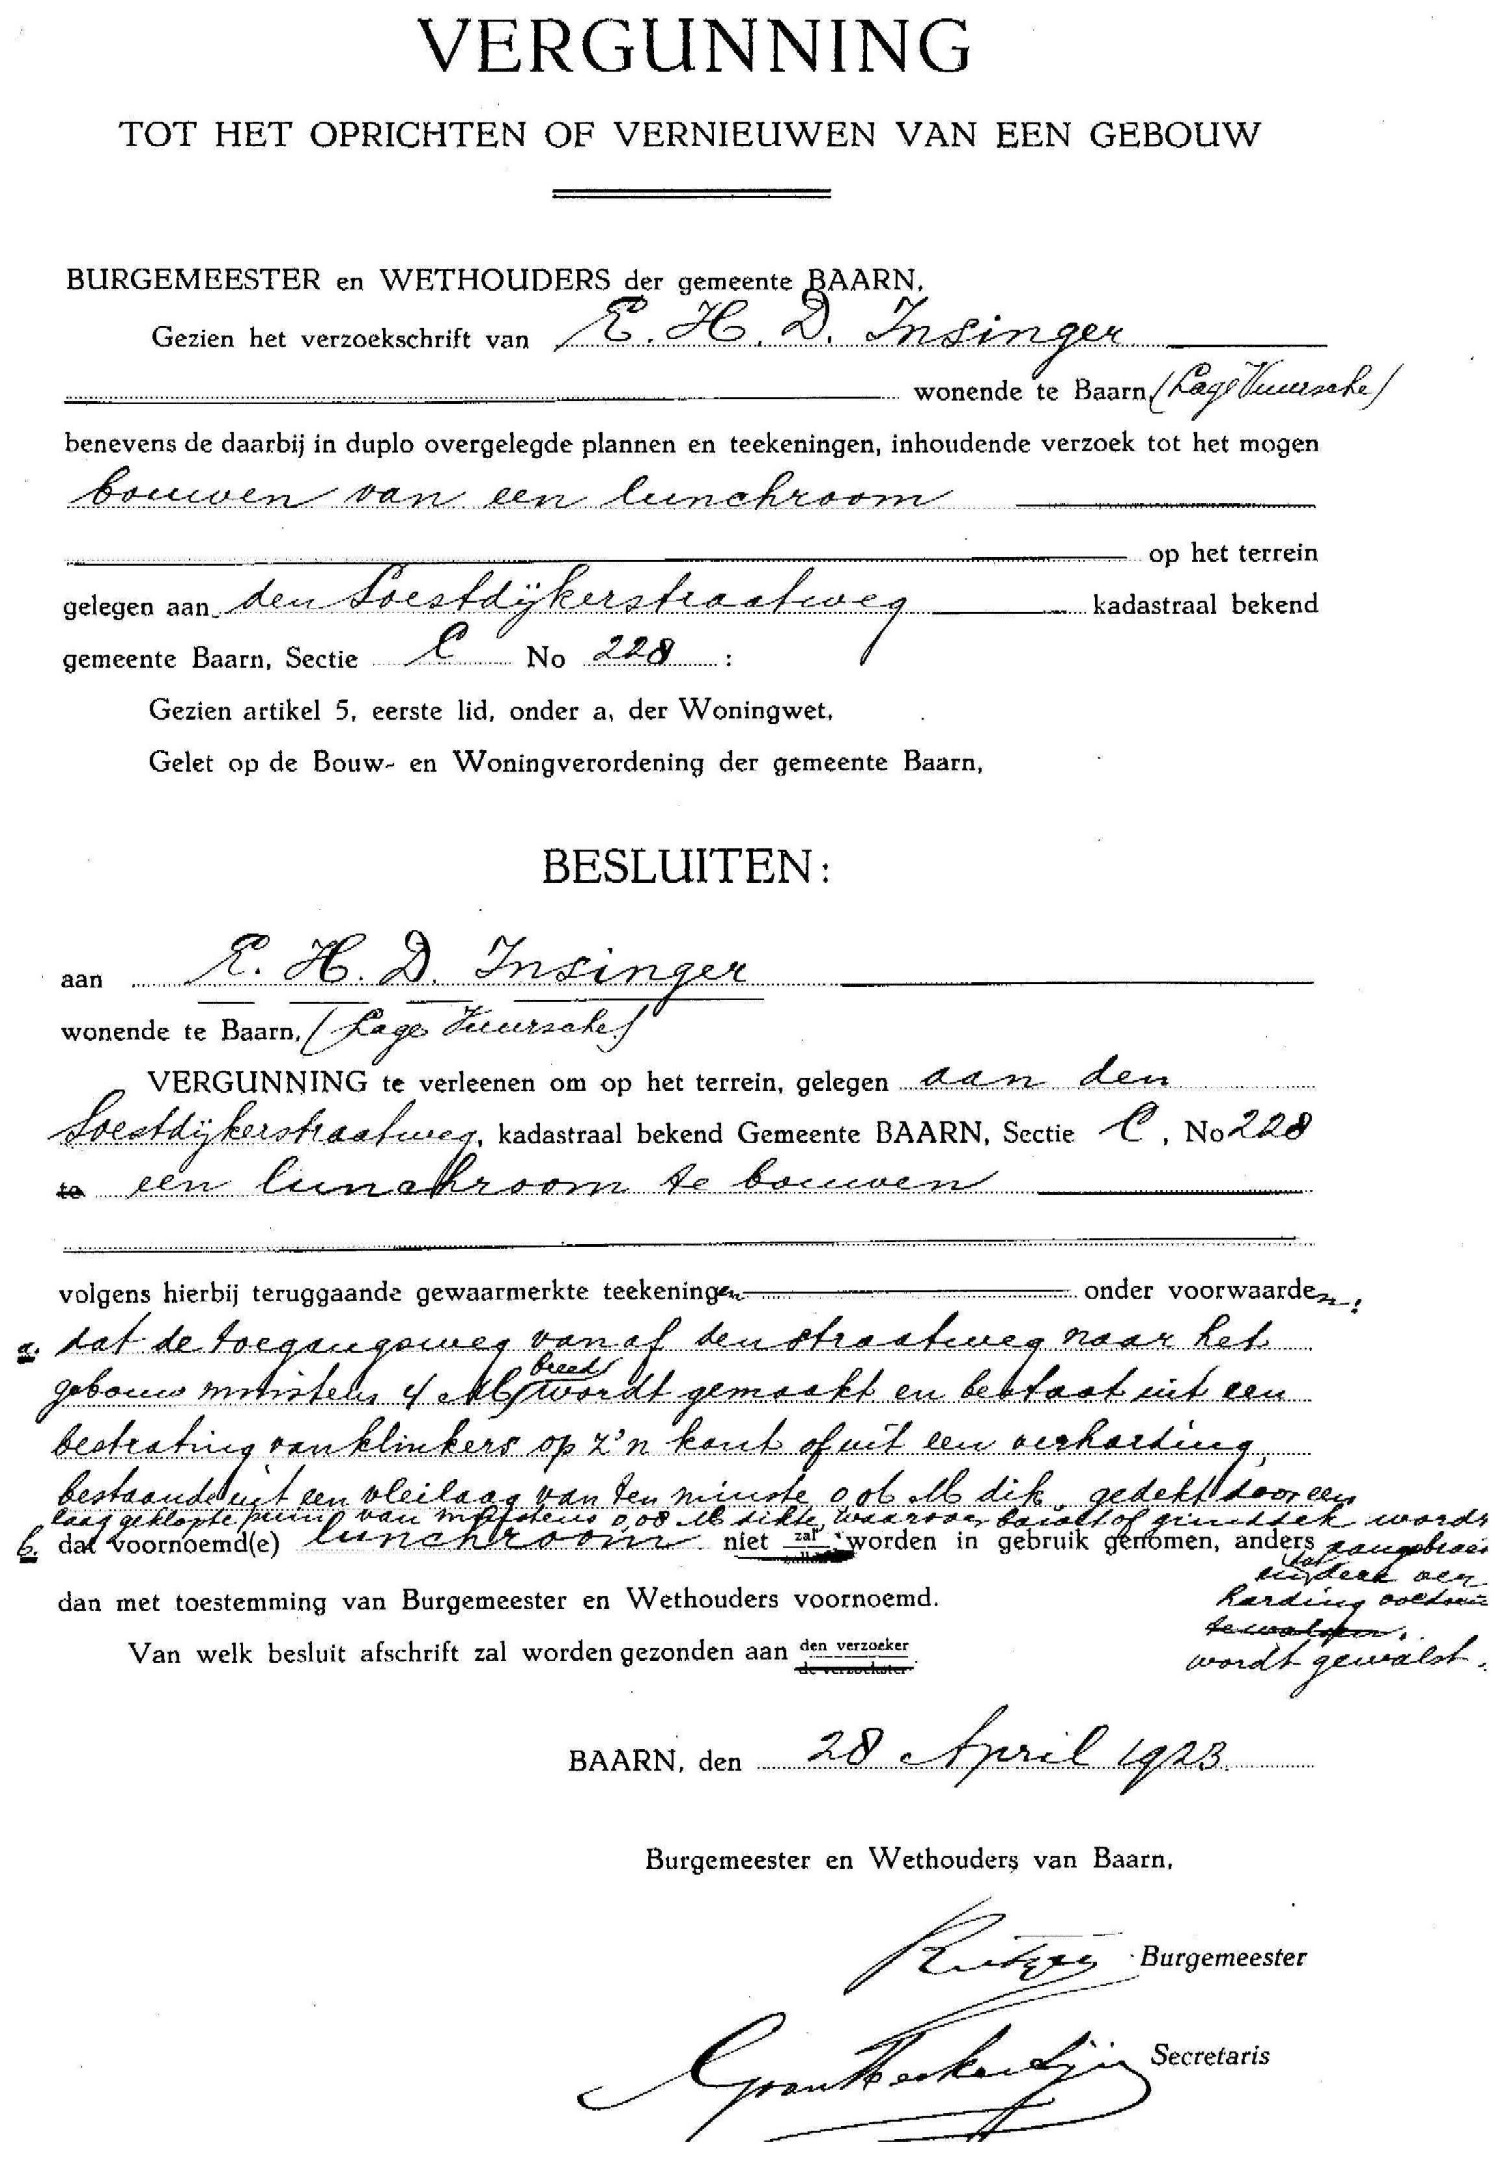 VERGUNNING
TOT HET OPRICHTEN OF VERNIEUWEN VAN EEN GEBOUW
BURGEMEESTER en WETHOUDERS der gemeente BAARN,
Gezien het verzoekschrift van E. H. D. Insinger
wonende te Baarn, (Lage Vuursche)
benevens de daarbij in duplo overgelegde plannen en teekeningen, inhoudende verzoek tot het mogen
bouwen van een lunchroom
op het terrein
gelegen aan den Soestdijkerstraatweg kadastraal bekend
gemeente Baarn, Sectie C No 228 :
Gezien artikel 5, eerste lid, onder a, der Woningwet,
Gelet op de Bouw- en Woningverordening der gemeente Baarn,
BESLUITEN:
aan E. H. D. Insinger
wonende te Baarn, (Lage Vuursche)
VERGUNNING te verleenen om op het terrein, gelegen aan den
Soestdijkerstraatweg, kadastraal bekend Gemeente BAARN, Sectie C, No 228
te een lunchroom te bouwen
volgens hierbij teruggaande gewaarmerkte teekeningen onder voorwaarden:
a. dat de toegangsweg vanaf den straatweg naar het
breed
gebouw minstens 4 M wordt gemaakt en bestaat uit een
bestrating van klinkers op z'n kant of uit een verharding,
bestaande uit een vleilaag van ten minste 0,06 M dik, gedekt door een
laag geklopte puin van minstens 0,08 M dikte, waarover wordt
b. dat voornoemd(e) lunchroom niet zal worden in gebruik genomen, anders
dat
deze ver
harding
dan met toestemming van Burgemeester en Wethouders voornoemd.
te walsen.
Van welk besluit afschrift zal worden gezonden aan den verzoeker
de verzoekster
wordt gewalst.
BAARN, den 28 April 1923
Burgemeester en Wethouders van Baarn,
Burgemeester
Secretaris